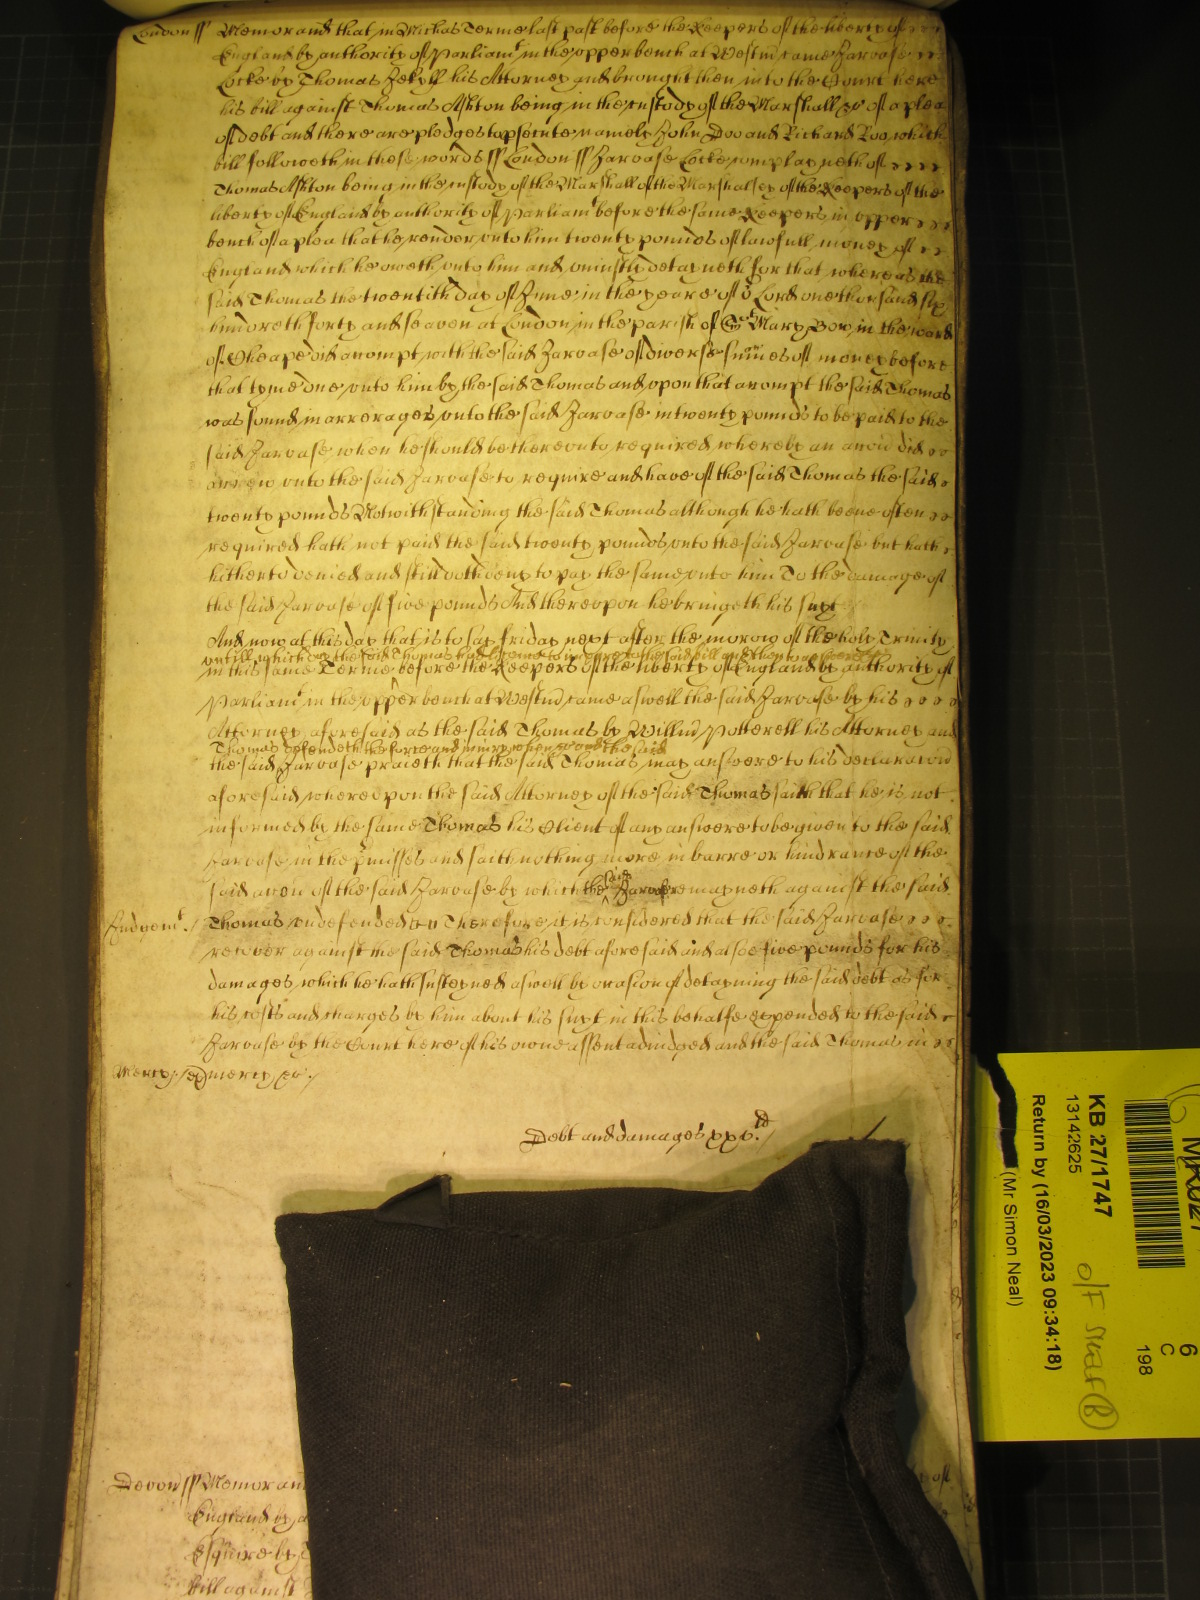 London ss Memorand that in Michas Terme last past before the Keepers of the liberty of
England by authority of Parliamt in the upper bench at Westmr came Jarvase
Locke by Thomas Jekyll his Attorney and brought then into the Court here
his bill against Thomas Ashton being in the custody of the Marshall &c of a plea
of debt and there are pledges to psecute namely John Doo and Richard Roo, which
bill followeth in these words ss London ss Jarvase Locke complayneth of
Thomas Ashton being in the custody of the Marshall of the Marshalsey of the Keepers of the
liberty of England by authority of Parliamt before the same Keepers in upper
bench of a plea that he render unto him twenty pounds of lawfull money of
England which he oweth unto him and uniustly detayneth for that whereas the
said Thomas the twentith day of June in the yeare of or Lord one thousand six
hundreth forty and seaven at London in the parish of St Mary Bow in the ward
of Cheape did accompt with the said Jarvase of diverse summes of money before
that tyme due unto him by the said Thomas and upon that accompt the said Thomas
was found in arrerages unto the said Jarvase in twenty pounds to be paid to the
said Jarvase when he should be thereunto required whereby an accon did
accrew unto the said Jarvase to require and have of the said Thomas the said
twenty pounds Notwithstanding the said Thomas although he hath beene often
required hath not paid the said twenty pounds unto the said Jarvase but hath
hitherto denied and still doth deny to pay the same unto him To the damage of
the said Jarvase of five pounds And thereupon he bringeth his suyt
And now at this day that is to say friday next after the morrow of the holy Trinity
untill which day the said Thomas had licence to imparle to the said bill and then to answere &c
in this same Terme before the Keepers of the liberty of England by authority of
Parliamt in the upper bench at Westmr came aswell the said Jarvase by his
Attorney aforesaid as the said Thomas by Willm Potterell his Attorney and
Thomas defendeth the force and iniury when &c and the said
the said Jarvase praieth that the said Thomas may answere to his declaracon
aforesaid whereupon the said Attorney of the said Thomas saith that he is not
informed by the same Thomas his Client of any answere to be given to the said
Jarvase in the pmisses and saith nothing more in barre or hindrance of the
said accon of the said Jarvase by which the said Jarvase remayneth against the said
Judgemt / Thomas undefended &c Therefore it is considered that the said Jarvase
recover against the said Thomas his debt aforesaid and alsoe five pounds for his
damages which he hath susteyned aswell by occasion of detayning the said debt as for
his costs and charges by him about his suyt in this behalfe expended to the said
Jarvase by the Court here of his owne assent adiudged and the said Thomas in
Mercy / mercy &c /
Debt and damages xxv li
Devon ss Memoran
England by a
Esquire by
bill against
of
KB 27/1747
13142625
Return by (16/03/2023 09:34:18)
(Mr Simon Neal)
O/F
6
C
198